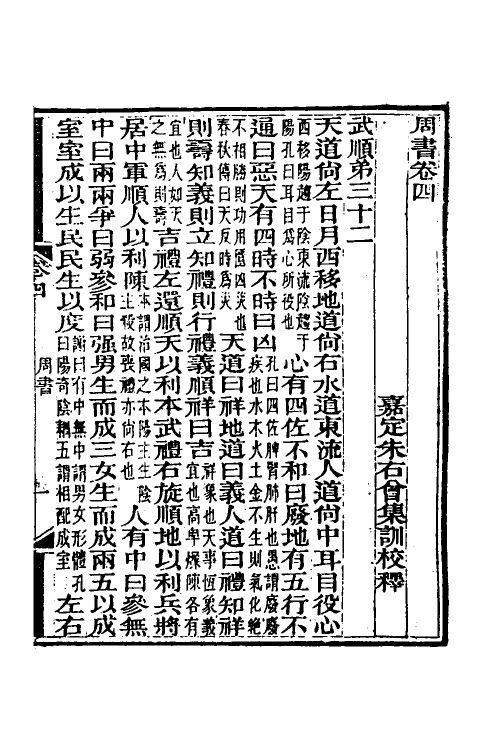 周書卷四
嘉定朱右曾集訓校釋
武順弟三十二
天道尚左日月西移地道尚右水道東流人道尚中耳目役心
西移陽趨于陰東流陰趨于陽孔曰耳目爲心所役也心有四佐不和曰廢地有五行不
通曰惡天有四時不時曰凶孔曰四佐脾腎肺肝也愚謂廢廢疾也水木火土金不生則氣化絶
不相勝則功用匱凶災也春秋傳曰天反時爲災天道曰祥地道曰義人道曰禮知祥
則壽知義則立知禮則行禮義順祥曰吉祥象也天事恆象義宜也高卑燥隰各有
宜也人如天之無爲則壽吉禮左還順天以利本武禮右旋順地以利兵將
居中軍順人以利陳本謂治國之本陽主生陰主殺故喪禮亦尚右也人有中曰參無
中曰兩兩爭曰弱參和曰强男生而成三女生而成兩五以成
室室成以生民民生以度謝曰有中無中謂男女形體孔曰陽奇陰耦五謂相配成室左右
卷四
周書
一